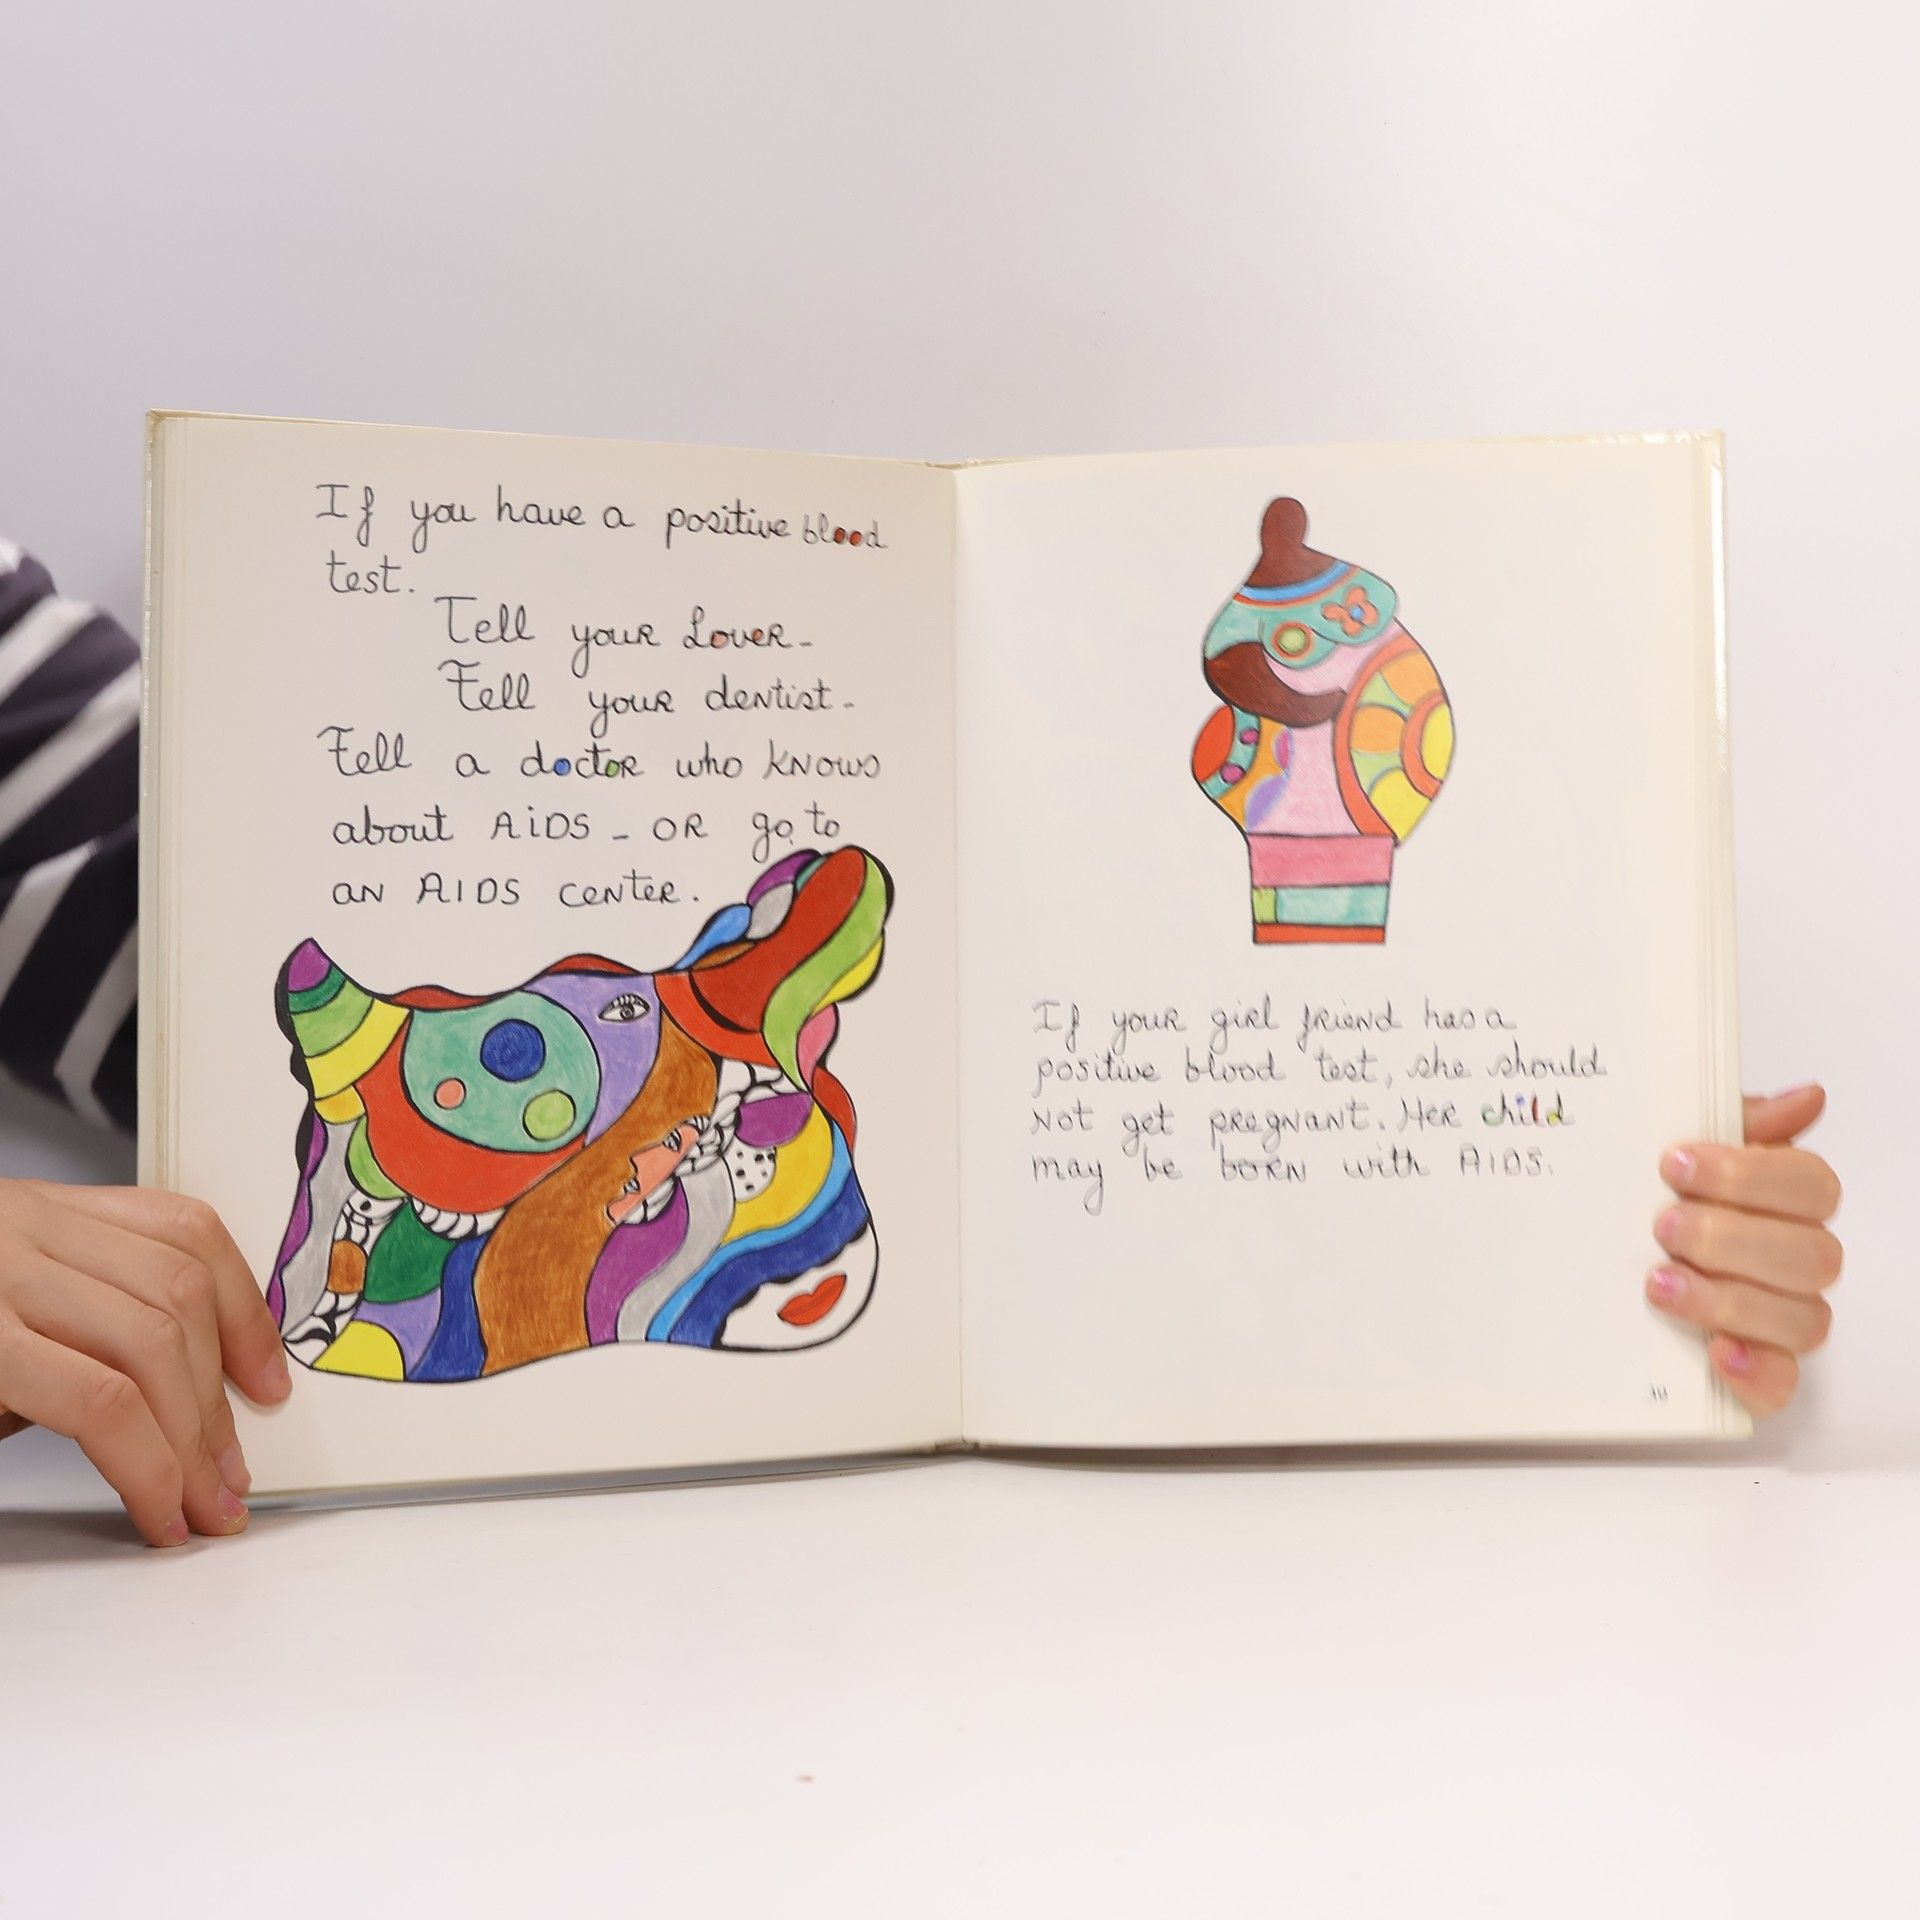 If you have a positive blood
test.
Tell your Lover-
Tell your dentist-
Tell a doctor who knows
about AIDS - OR go to
an AIDS center.
If your girl friend has a
positive blood test, she should
not get pregnant. Her child
may be born with AIDS.